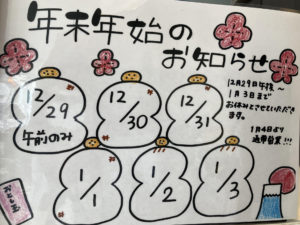 年末年始の
お知らせ
12月29日午後～
1月3日まで
お休みとさせていただき
ます。
1月4日より
通常営業!!!
12/29
午前のみ
12/30
12/31
1/1
1/2
1/3
お年玉